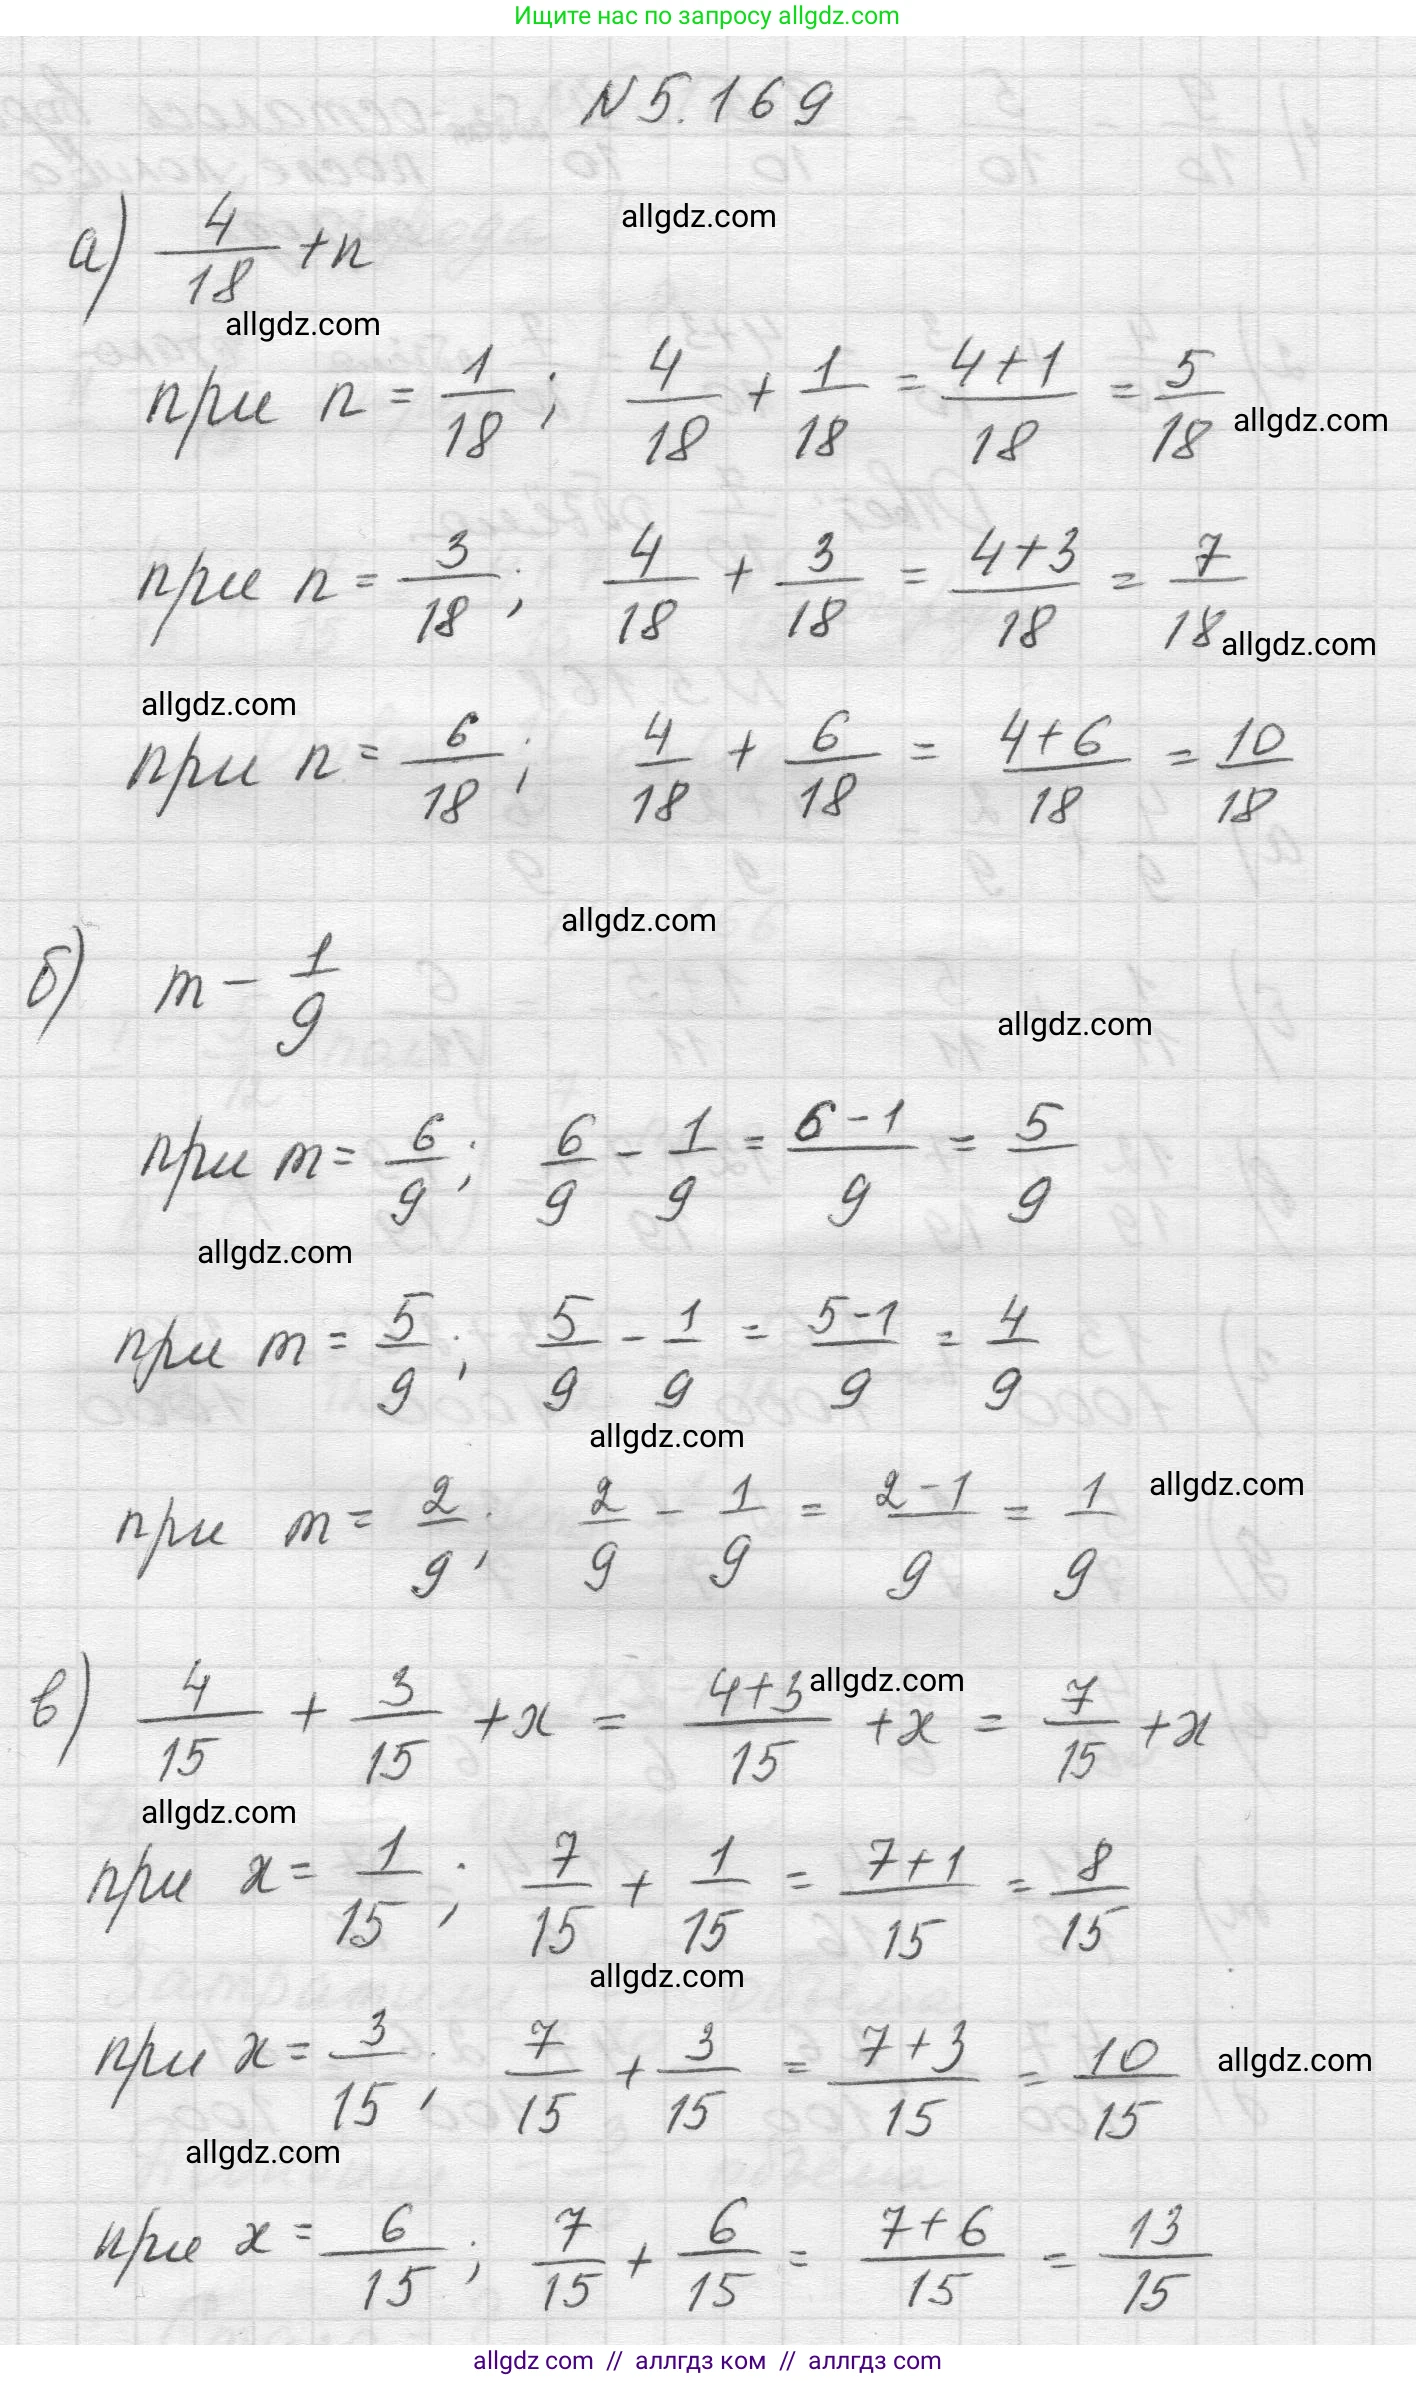 Ищите нас по запросу allgdz.com
N 5.169
allgdz.com
а) 4/18 + n
allgdz.com
при n = 1/18; 4/18 + 1/18 = (4+1)/18 = 5/18
allgdz.com
при n = 3/18; 4/18 + 3/18 = (4+3)/18 = 7/18
allgdz.com
allgdz.com
при n = 6/18; 4/18 + 6/18 = (4+6)/18 = 10/18
allgdz.com
б) m - 1/9
allgdz.com
при m = 6/9; 6/9 - 1/9 = (6-1)/9 = 5/9
allgdz.com
при m = 5/9; 5/9 - 1/9 = (5-1)/9 = 4/9
allgdz.com
allgdz.com
при m = 2/9; 2/9 - 1/9 = (2-1)/9 = 1/9
allgdz.com
в) 4/15 + 3/15 + x = (4+3)/15 + x = 7/15 + x
allgdz.com
при x = 1/15; 7/15 + 1/15 = (7+1)/15 = 8/15
allgdz.com
при x = 3/15; 7/15 + 3/15 = (7+3)/15 = 10/15
allgdz.com
allgdz.com
при x = 6/15; 7/15 + 6/15 = (7+6)/15 = 13/15
allgdz com // аллгдз ком // аллгдз com